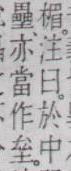 楣。注曰。於中
壘亦當作垒。